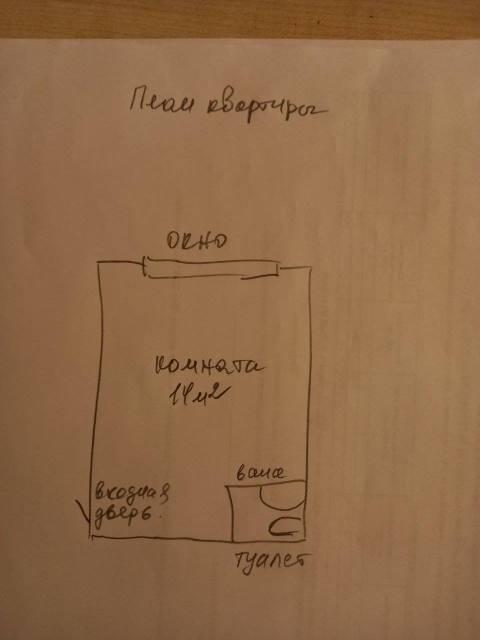 План квартиры
окно
комната
14м2
входная
дверь.
вана
туалет